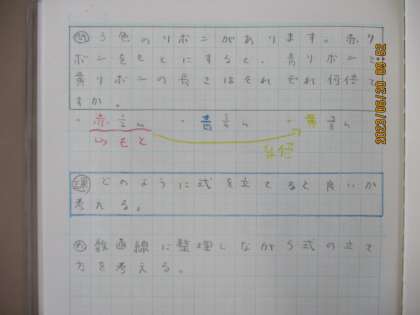 問 3色のリボンがあります。赤リ
ボンをもとにすると、青リボンと
黄リボンの長さはそれぞれ何倍で
すか。
・赤 m ・青 m ・黄 m
もと 何倍
課 どのように式を立てると良いか
考える。
数直線に整理しながら式の立て
方を考える。